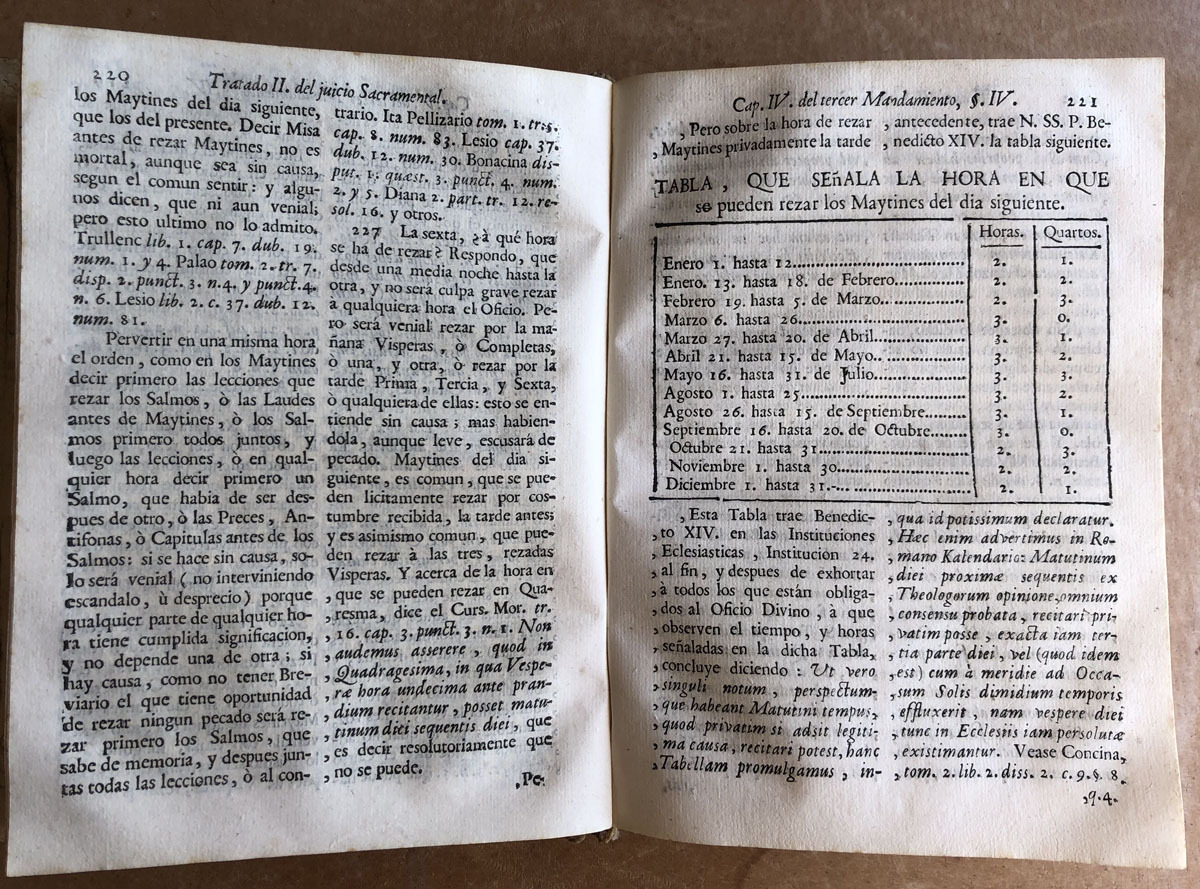 220
Tratado II. del juicio Sacramental.
los Maytines del dia siguiente,
que los del presente. Decir Misa
antes de rezar Maytines, no es
mortal, aunque sea sin causa,
segun el comun sentir: y algu-
nos dicen, que ni aun venial;
pero esto ultimo no lo admito.
Trullenc lib. 1. cap. 7. dub. 19.
num. 1. y 4. Palao tom. 2. tr. 7.
disp. 2. punct. 3. n.4. y punct.4.
n. 6. Lesio lib. 2. c. 37. dub. 12.
num. 81.
Pervertir en una misma hora
el orden, como en los Maytines
decir primero las lecciones que
rezar los Salmos, ò las Laudes
antes de Maytines, ò los Sal-
mos primero todos juntos, y
luego las lecciones, ò en qual-
quier hora decir primero un
Salmo, que habia de ser des-
pues de otro, ò las Preces, An-
tifonas, ò Capitulas antes de los
Salmos: si se hace sin causa, so-
lo será venial (no interviniendo
escandalo, ù desprecio) porque
qualquier parte de qualquier ho-
ra tiene cumplida significacion,
y no depende una de otra; si
hay causa, como no tener Bre-
viario el que tiene oportunidad
de rezar ningun pecado será re-
zar primero los Salmos, que
sabe de memoria, y despues jun-
tas todas las lecciones, ò al con-
trario. Ita Pellizario tom. 1. tr. 5.
cap. 8. num. 83. Lesio cap. 37.
dub. 12. num. 30. Bonacina dis-
put. 1. quæst. 3. punct. 4. num.
2. y 5. Diana 2. part. tr. 12. re-
sol. 16. y otros.
227 La sexta, ¿à qué hora
se ha de rezar? Respondo, que
desde una media noche hasta la
otra, y no será culpa grave rezar
à qualquiera hora el Oficio. Pe-
ro será venial rezar por la ma-
ñana Visperas, ò Completas,
ò una, y otra, ò rezar por la
tarde Prima, Tercia, y Sexta,
ò qualquiera de ellas: esto se en-
tiende sin causa; mas habien-
dola, aunque leve, escusará de
pecado. Maytines del dia si-
guiente, es comun, que se pue-
den licitamente rezar por cos-
tumbre recibida, la tarde antes;
y es asimismo comun, que pue-
den rezar à las tres, rezadas
Visperas. Y acerca de la hora en
, que se pueden rezar en Qua-
, resma, dice el Curs. Mor. tr.
, 16. cap. 3. punct. 3. n. 1. Non
, audemus asserere, quod in
, Quadragesima, in qua Vespe-
, ræ hora undecima ante pran-
, dium recitantur, posset matu-
, tinum diei sequentis diei, que
, es decir resolutoriamente que
, no se puede.
,Pe-
Cap. IV. del tercer Mandamiento, §. IV.
221
, Pero sobre la hora de rezar
, Maytines privadamente la tarde
, antecedente, trae N. SS. P. Be-
, nedicto XIV. la tabla siguiente.
TABLA, QUE SEñALA LA HORA EN QUE
se pueden rezar los Maytines del dia siguiente.
Horas. Quartos.
Enero 1. hasta 12........ 2. 1.
Enero. 13. hasta 18. de Febrero........ 2. 2.
Febrero 19. hasta 5. de Marzo........ 2. 3.
Marzo 6. hasta 26........ 3. 0.
Marzo 27. hasta 20. de Abril........ 3. 1.
Abril 21. hasta 15. de Mayo........ 3. 2.
Mayo 16. hasta 31. de Julio........ 3. 3.
Agosto 1. hasta 25........ 3. 2.
Agosto 26. hasta 15. de Septiembre........ 3. 1.
Septiembre 16. hasta 20. de Octubre........ 3. 0.
Octubre 21. hasta 31........ 2. 3.
Noviembre 1. hasta 30........ 2. 2.
Diciembre 1. hasta 31.-........ 2. 1.
, Esta Tabla trae Benedic-
, to XIV. en las Instituciones
, Eclesiasticas, Institución 24.
, al fin, y despues de exhortar
, à todos los que están obliga-
, dos al Oficio Divino, à que
, observen el tiempo, y horas
, señaladas en la dicha Tabla,
, concluye diciendo: Ut vero
, singuli notum, perspectum-
, que habeant Matutini tempus,
, quod privatim si adsit legiti-
, ma causa, recitari potest, hanc
, Tabellam promulgamus, in-
, qua id potissimum declaratur.
, Hæc enim advertimus in Ro-
, mano Kalendario: Matutinum
, diei proximæ sequentis ex
, Theologorum opinione omnium
, consensu probata, recitari pri-
, vatim posse, exacta iam ter-
, tia parte diei, vel (quod idem
, est) cum à meridie ad Occa-
, sum Solis dimidium temporis
, effluxerit, nam vespere diei
, tunc in Ecclesiis iam persolutæ
, existimantur. Vease Concina,
, tom. 2. lib. 2. diss. 2. c. 9. §. 8.
,9.4.